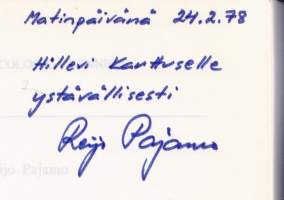 Matinpäivänä 24.2.78
Hillevi Karttuselle
ystävällisesti
Reijo Pajamo